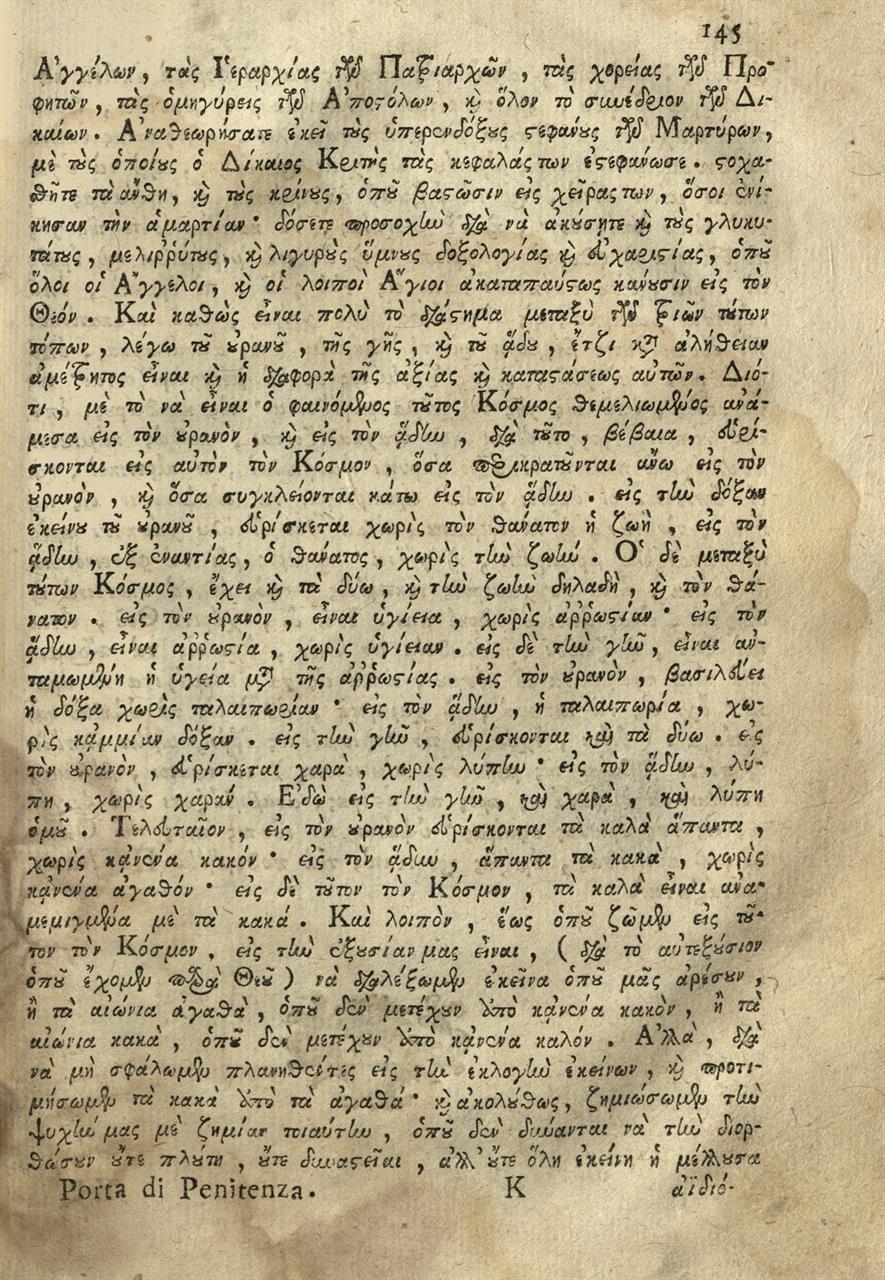 145
Ἀγγέλων, τὰς Ἱεραρχίας τῶν Πατριαρχῶν, τὰς χορείας τῶν Προ-
φητῶν, τὰς ὁμηγύρεις τῶν Ἀποστόλων, καὶ ὅλον τὸ συνέδριον τῶν Δι-
καίων. Ἀναθεωρήσατε ἐκεῖ τοὺς ὑπερενδόξους στεφάνους τῶν Μαρτύρων,
μὲ τοὺς ὁποίους ὁ Δίκαιος Κριτὴς τὰς κεφαλάς των ἐστεφάνωσε. στοχα-
θῆτε τὰ ἄνθη, καὶ τοὺς κρίνους, ὁποῦ βαστῶσιν εἰς χεῖρας των, ὅσοι ἐνί-
κησαν τὴν ἁμαρτίαν· δόσετε προσοχὴν διὰ νὰ ἀκούσητε καὶ τοὺς γλυκυ-
τάτους, μελιῤῥύτους, καὶ λιγυροὺς ὕμνους δοξολογίας καὶ εὐχαριστίας, ὁποῦ
ὅλοι οἱ Ἄγγελοι, καὶ οἱ λοιποὶ Ἅγιοι ἀκαταπαύστως κάνουσιν εἰς τὸν
Θεόν. Καὶ καθὼς εἶναι πολὺ τὸ διάστημα μεταξὺ τῶν τριῶν τούτων
τόπων, λέγω τοῦ οὐρανοῦ, τῆς γῆς, καὶ τοῦ ᾅδου, ἔτζι κατὰ ἀλήθειαν
ἀμέτρητος εἶναι καὶ ἡ διαφορὰ τῆς ἀξίας καὶ καταστάσεως αὐτῶν. Διό-
τι, μὲ τὸ νὰ εἶναι ὁ φαινόμενος τοῦτος Κόσμος θεμελιωμένος ἀνά-
μεσα εἰς τὸν οὐρανὸν, καὶ εἰς τὸν ᾅδην, διὰ τοῦτο, βέβαια, εὑρί-
σκονται εἰς αὐτὸν τὸν Κόσμον, ὅσα περικρατοῦνται ἄνω εἰς τὸν
οὐρανὸν, καὶ ὅσα συγκλείονται κάτω εἰς τὸν ᾅδην. εἰς τὴν δόξαν
ἐκείνου τοῦ οὐρανοῦ, εὑρίσκεται χωρὶς τὸν θάνατον ἡ ζωὴ, εἰς τὸν
ᾅδην, ἐξ ἐναντίας, ὁ θάνατος, χωρὶς τὴν ζωήν. Ὁ δὲ μεταξὺ
τούτων Κόσμος, ἔχει καὶ τὰ δύω, καὶ τὴν ζωὴν δηλαδὴ, καὶ τὸν θά-
νατον. εἰς τὸν οὐρανὸν, εἶναι ὑγίεια, χωρὶς ἀῤῥωστίαν· εἰς τὸν
ᾅδην, εἶναι ἀῤῥωστία, χωρὶς ὑγίειαν. εἰς δὲ τὴν γῆν, εἶναι ἀν-
ταμωμένη ἡ ὑγεία μετὰ τῆς ἀῤῥωστίας. εἰς τὸν οὐρανὸν, βασιλεύει
ἡ δόξα χωρὶς ταλαιπωρίαν· εἰς τὸν ᾅδην, ἡ ταλαιπωρία, χω-
ρὶς κᾀμμίαν δόξαν. εἰς τὴν γῆν, εὑρίσκονται καὶ τὰ δύω. εἰς
τὸν οὐρανὸν, εὑρίσκεται χαρὰ, χωρὶς λύπην· εἰς τὸν ᾅδην, λύ-
πη, χωρὶς χαράν. Ἐδῶ εἰς τὴν γῆν, καὶ χαρὰ, καὶ λύπη
ὁμοῦ. Τελευταῖον, εἰς τὸν οὐρανὸν εὑρίσκονται τὰ καλὰ ἅπαντα,
χωρὶς κᾀνένα κακόν· εἰς τὸν ᾅδην, ἅπαντα τὰ κακὰ, χωρὶς
κᾀνένα ἀγαθόν· εἰς δὲ τοῦτον τὸν Κόσμον, τὰ καλὰ εἶναι ἀνα-
μεμιγμένα μὲ τὰ κακά. Καὶ λοιπὸν, ἕως ὁποῦ ζῶμεν εἰς τοῦ-
τον τὸν Κόσμον, εἰς τὴν ἐξουσίαν μας εἶναι, (διὰ τὸ αὐτεξούσιον
ὁποῦ ἔχομεν παρὰ Θεοῦ) νὰ διαλέξωμεν ἐκεῖνα ὁποῦ μᾶς ἀρέσουν,
ἢ τὰ αἰώνια ἀγαθὰ, ὁποῦ δὲν μετέχουν ἀπὸ κᾀνένα κακὸν, ἢ τὰ
αἰώνια κακὰ, ὁποῦ δὲν μετέχουν ἀπὸ κᾀνένα καλόν. Ἀλλὰ, διὰ
νὰ μὴ σφάλωμεν πλανηθέντες εἰς τὴν ἐκλογὴν ἐκείνων, καὶ προτι-
μήσωμεν τὰ κακὰ ἀπὸ τὰ ἀγαθά· καὶ ἀκολούθως, ζημιώσωμεν τὴν
ψυχήν μας μὲ ζημίαν τοιαύτην, ὁποῦ δὲν δύνανται νὰ τὴν διορ-
θώσουν οὔτε πλούτη, οὔτε δυναστεῖαι, ἀλλ' οὔτε ὅλη ἐκείνη ἡ μέλλουσα
Porta di Penitenza. K ἀϊδιό-